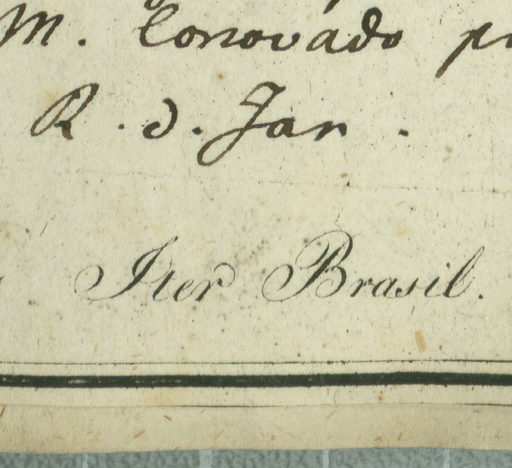 M. Conovado
R. d. Jan.
Iter Brasil.